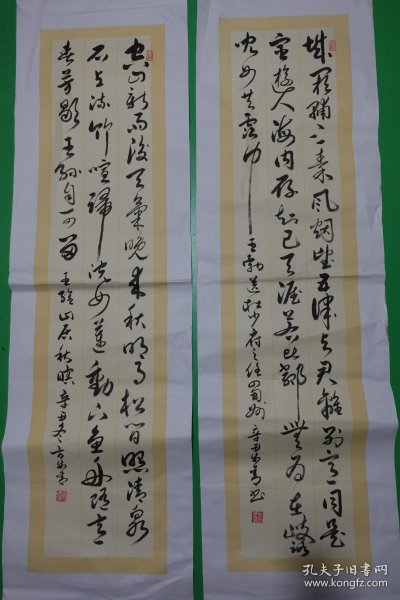 城阙輔三秦風烟望五津与君離别意同是
宦遊人海内存知己天涯若比鄰無為在歧路
児女共霑巾 王勃送杜少府之任蜀州 辛丑
空山新雨後天氣晚来秋明月松間照清泉
石上流竹喧歸浣女蓮動下漁舟随意
春芳歇王孫自可留 王維山居秋暝 辛丑冬
孔夫子旧书网
www.kongfz.com